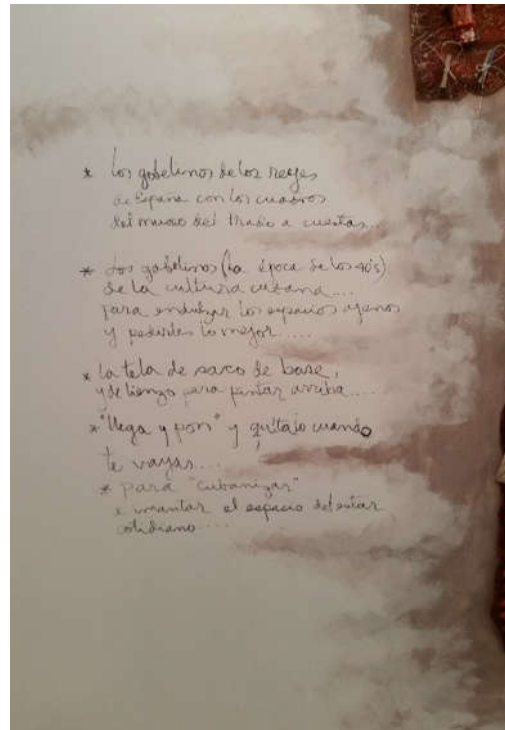 * Los gobelinos de los reyes
de España con los cuadros
del museo del Prado a cuestas...
* Los gobelinos (la época de los 40s)
de la cultura cubana....
para endulzar los espacios ajenos
y pedirles lo mejor.....
* La tela de saco de base,
y de lienzo para pintar arriba.....
* "llega y pon" y quítalo cuando
te vayas....
* para "cubanizar"
e imantar el espacio del estar
cotidiano....